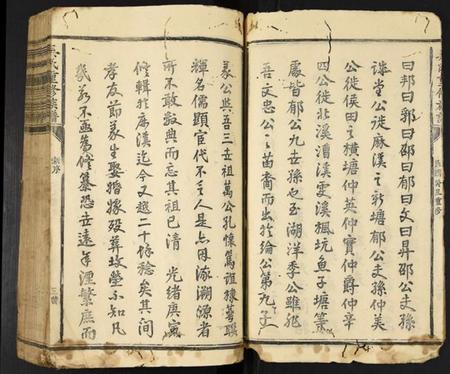 曰邦曰郭曰邵曰郁曰文曰昇邵公支孫
公徙麻漢之新塘郁公支孫仲美
公徙侯田之橫塘仲英仲寶仲爵仲辛
四公徙北溪漕溪雲溪楓坑魚子塘等
處皆郁公九世孫也至湖洋季公雖非
吾文忠公之苗裔而出於綸公第九子
義公與吾三世祖萬公孔懷篤誼據導聯
輝名儒顯官代不乏人是亦因流溯源者
所不敢數典而忘其祖已清 光緒庚寅
修輯於 漢迄今又越二十餘稔矣其間
孝友節義生娶婚嫁歿葬坟塋不知凡
幾若不亟為修纂恐世遠年湮繁庶而
氏重修族譜
序
三
民國 重修